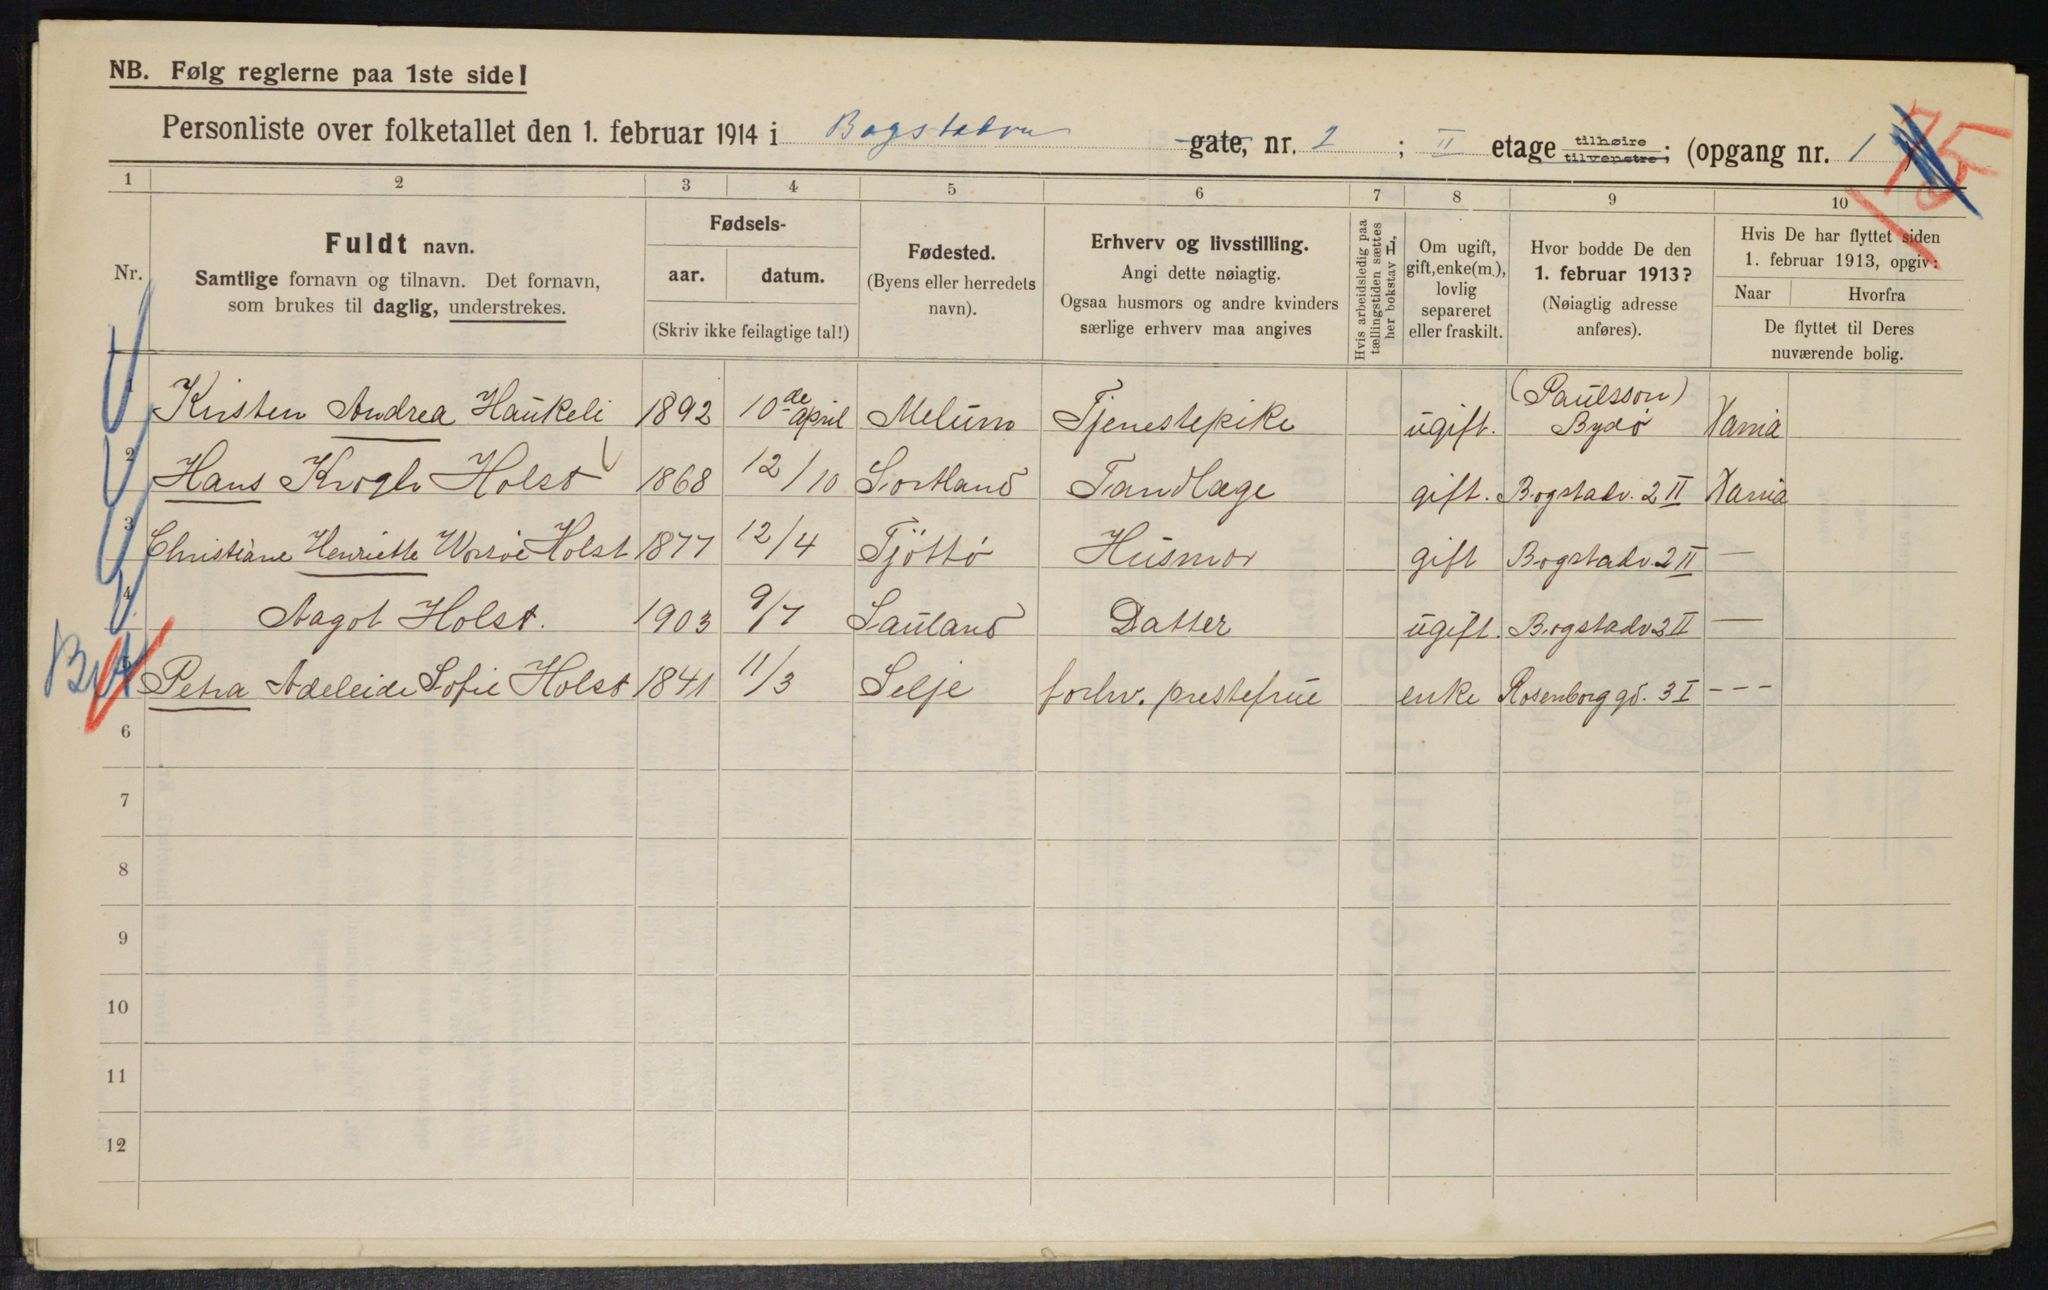 NB. Følg reglerne paa 1ste side!
Personliste over folketallet den 1. februar 1914 i Bogstadvn gate, nr. 2 ; II etage tilhøire tilvenstre; (opgang nr. 1 )
175
1 2 3 4 5 6 7 8 9 10
Nr.
Fuldt navn.
Samtlige fornavn og tilnavn. Det fornavn,
som brukes til daglig, understrekes.
Fødsels-
aar. datum.
(Skriv ikke feilagtige tal!)
Fødested.
(Byens eller herredets
navn).
Erhverv og livsstilling.
Angi dette nøiagtig.
Ogsaa husmors og andre kvinders
særlige erhverv maa angives
Hvis arbeidsledig paa
tællingstiden sættes
her bokstav L.
Om ugift,
gift, enke(m.),
lovlig
separeret
eller fraskilt.
Hvor bodde De den
1. februar 1913?
(Nøiagtig adresse
anføres).
Hvis De har flyttet siden
1. februar 1913, opgiv:
Naar Hvorfra
De flyttet til Deres
nuværende bolig.
1 Kirsten Andrea Haukeli 1892 10de april Melum Tjenestepike ugift. (Paulsson) Bygdø Xania
2 Hans Krogh Holst 1868 12/10 Sortland Tandlæge gift. Bogstadv. 2 II Xania
3 Christiane Henriette Worsöe Holst 1877 12/4 Tjöttö Husmor gift Bogstadv. 2 II —
4 Aagot Holst. 1903 9/7 Sauland Datter ugift. Bogstadv 2 II —
5 Petra Adeleide Sofie Holst 1841 11/3 Selje forhv. prestefrue enke Rosenborg gd. 3 I - - -
6
7
8
9
10
11
12